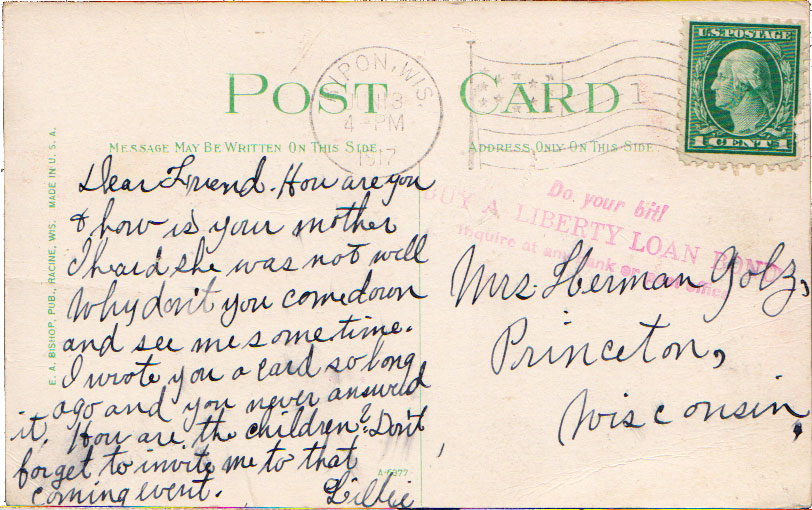 POST CARD
MESSAGE MAY BE WRITTEN ON THIS SIDE
ADDRESS ONLY ON THIS SIDE
RIPON, WIS.
4 - PM
1917
1
U.S. POSTAGE
1 CENT 1
E. A. BISHOP, PUB., RACINE, WIS. MADE IN U. S. A.
Dear Friend. How are you
& how is your mother
I heard she was not well
Why don't you come down
and see me sometime.
I wrote you a card so long
ago and you never answered
it. How are the children? Don't
forget to invite me to that
coming event.
Lillie
A-6977
Do your bit!
BUY A LIBERTY LOAN BOND
Inquire at any bank or post office
Mrs. Herman Golz,
Princeton,
Wisconsin,